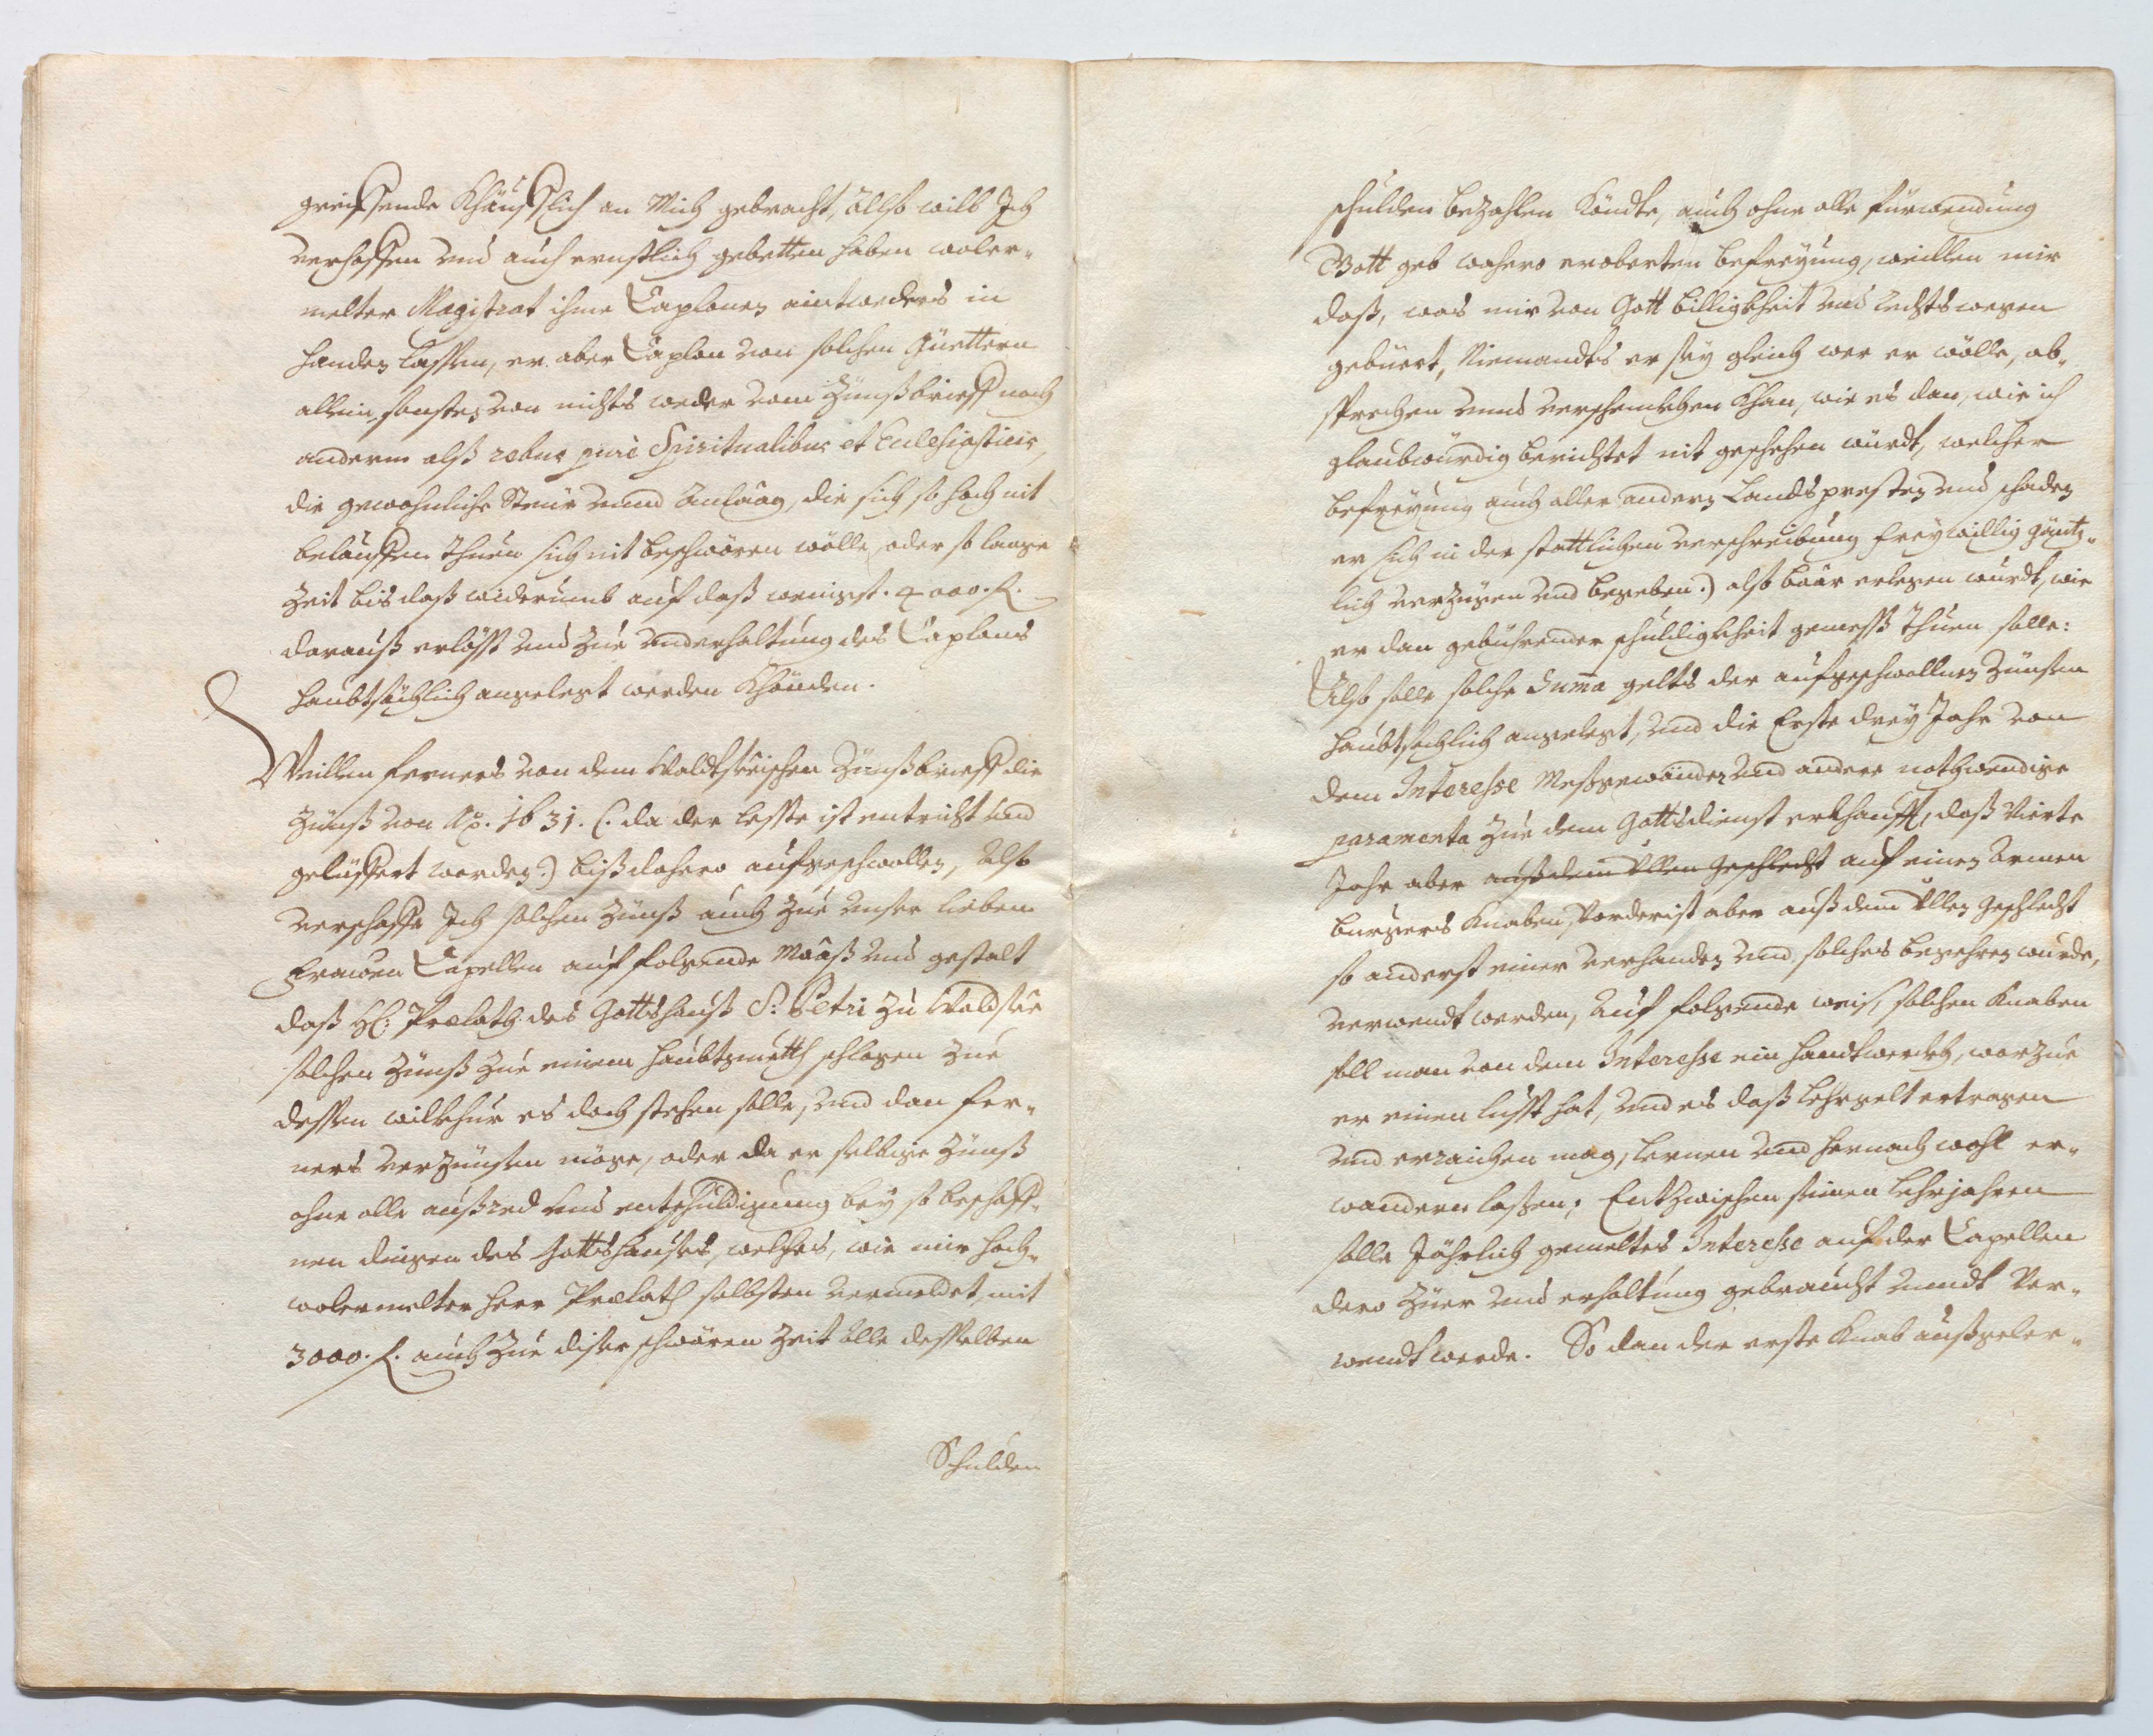 greiffende Khäufflich an Mich gebracht, Allso will Ich
verhoffen und auch ernstlich gebetten haben woler-
melter Magistrat ihme Caplonen aintweders in
handen lassen, er aber Caplon von solchen Güettern
allein, sonsten von nichts weder vom Zünßbrieff noch
anderm alß rebus purè Spiritualibus et Ecclesiasticis,
die gewohnliche Steur unnd Anlaag, die sich so hoch nit
belauffen thuen sich nit beschwören wölle, oder so lange
Zeit bis daß widerumb auf daß wenigst. 4000. f.
darauß erlößt und zue underhaltung des Caplons
haubtsächlich angelegt werden khönden.
Weillen ferners von dem Waldtseeischen Zünßbrieff die
Zünß von Ao. 1631. (: da der leste ist entricht und
gelüffert worden :) biß dahero aufgeschwollen, Also
verschaffe Ich solchen Zünß auch zue unser lieben
Frawen Capellen auf folgende Maaß und gestalt
daß H: Prælath des Gottshauß S. Petri zu Waldsee
solchen Zünß zue einem haubtguetth schlagen zue
dessen willkhur es doch stehen solle, und dan fer-
ners verzünsen möge, oder da er selbige Zünß
ohne alle außred und entschuldigung bey so beschaff-
nen dingen des Gottshauses, welches, wie mir hoch-
wolermelter Herr Prælath selbsten vermeldet, mit
3000. f. auch zue diser schwären Zeit alle desselben
Schulden
schulden bezahlen köndte, auch ohne alle fürwendung
Gott geb wahero eroberten befreyung, weillen mir
daß, was mir von Gott billigkheit und rechts wegen
gebüert, Niemandts er sey gleich wer er wölle, ab-
sprechen unnd verschenkhen khan, wie es dan, wie ich
glaubwürdig berichtet nit geschehen würdt, welcher
befreyung auch aller andern Landspresten und schaden
er sich in der stattlichen verschreibung freywillig gäntz-
lich verzigen und begeben :) also baar erlegen wurdt, wie
er dan gebührender schuldigkheit gemeß thuen solle:
Also solle solche Summa gelts der aufgeschwollnen Zünsen
haubtsechlich angelegt, und die Erste drey Jahr von
dem Interesse Meßgewänder und andere nothwendige
paramenta zue dem Gottsdienst erkhaufft, daß Vierte
Jahr aber auß dem Ullen Geschlecht auf einen Armen
burgers Knaben, Vorderist aber auß dem Ullen geschlecht
so anderst einer verhanden und solches begehren wurde,
verwendt werden, Auf folgende weis, solchen Knaben
soll man von dem Interesse ein handtwerckh, warzue
er einen lust hat, und es daß Lehrgelt ertragen
und erraichen mag, lernen und hernach wohl er-
wandern lassen; Entzwischen seinen Lehrjahren
solle Jährlich gemeltes Interesse auf der Capellen
dero Züer und erhaltung gebraucht unndt Ver-
wendt werde. So dan der erste Knab außgeler-